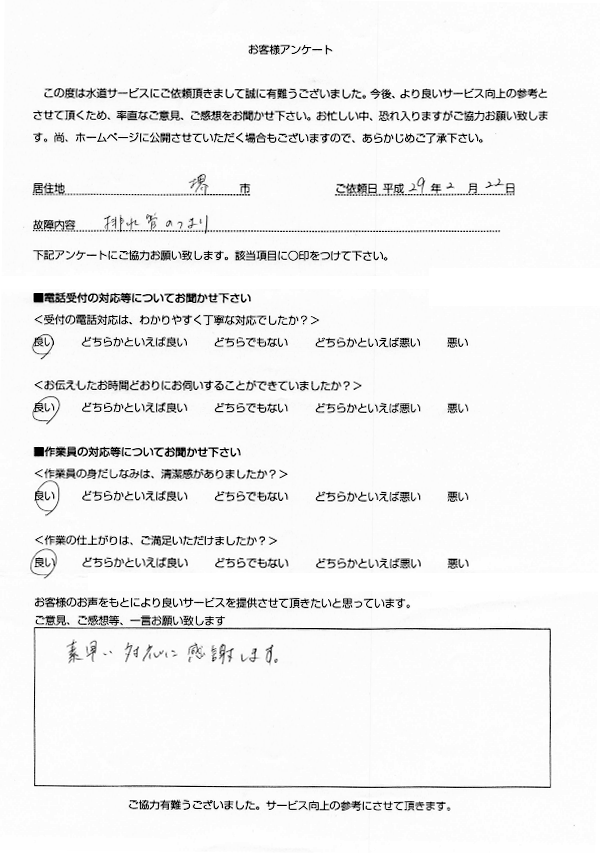 お客様アンケート
この度は水道サービスにご依頼頂きまして誠に有難うございました。今後、より良いサービス向上の参考と
させて頂くため、率直なご意見、ご感想をお聞かせ下さい。お忙しい中、恐れ入りますがご協力お願い致しま
す。尚、ホームページに公開させていただく場合もございますので、あらかじめご了承下さい。
居住地 堺 市 ご依頼日 平成 29 年 2 月 22 日
故障内容 排水管のつまり
下記アンケートにご協力お願い致します。該当項目に○印をつけて下さい。
■電話受付の対応等についてお聞かせ下さい
<受付の電話対応は、わかりやすく丁寧な対応でしたか?>
良い どちらかといえば良い どちらでもない どちらかといえば悪い 悪い
<お伝えしたお時間どおりにお伺いすることができていましたか?>
良い どちらかといえば良い どちらでもない どちらかといえば悪い 悪い
■作業員の対応等についてお聞かせ下さい
<作業員の身だしなみは、清潔感がありましたか?>
良い どちらかといえば良い どちらでもない どちらかといえば悪い 悪い
<作業の仕上がりは、ご満足いただけましたか?>
良い どちらかといえば良い どちらでもない どちらかといえば悪い 悪い
お客様のお声をもとにより良いサービスを提供させて頂きたいと思っています。
ご意見、ご感想等、一言お願い致します
素早い対応に感謝します。
ご協力有難うございました。サービス向上の参考にさせて頂きます。